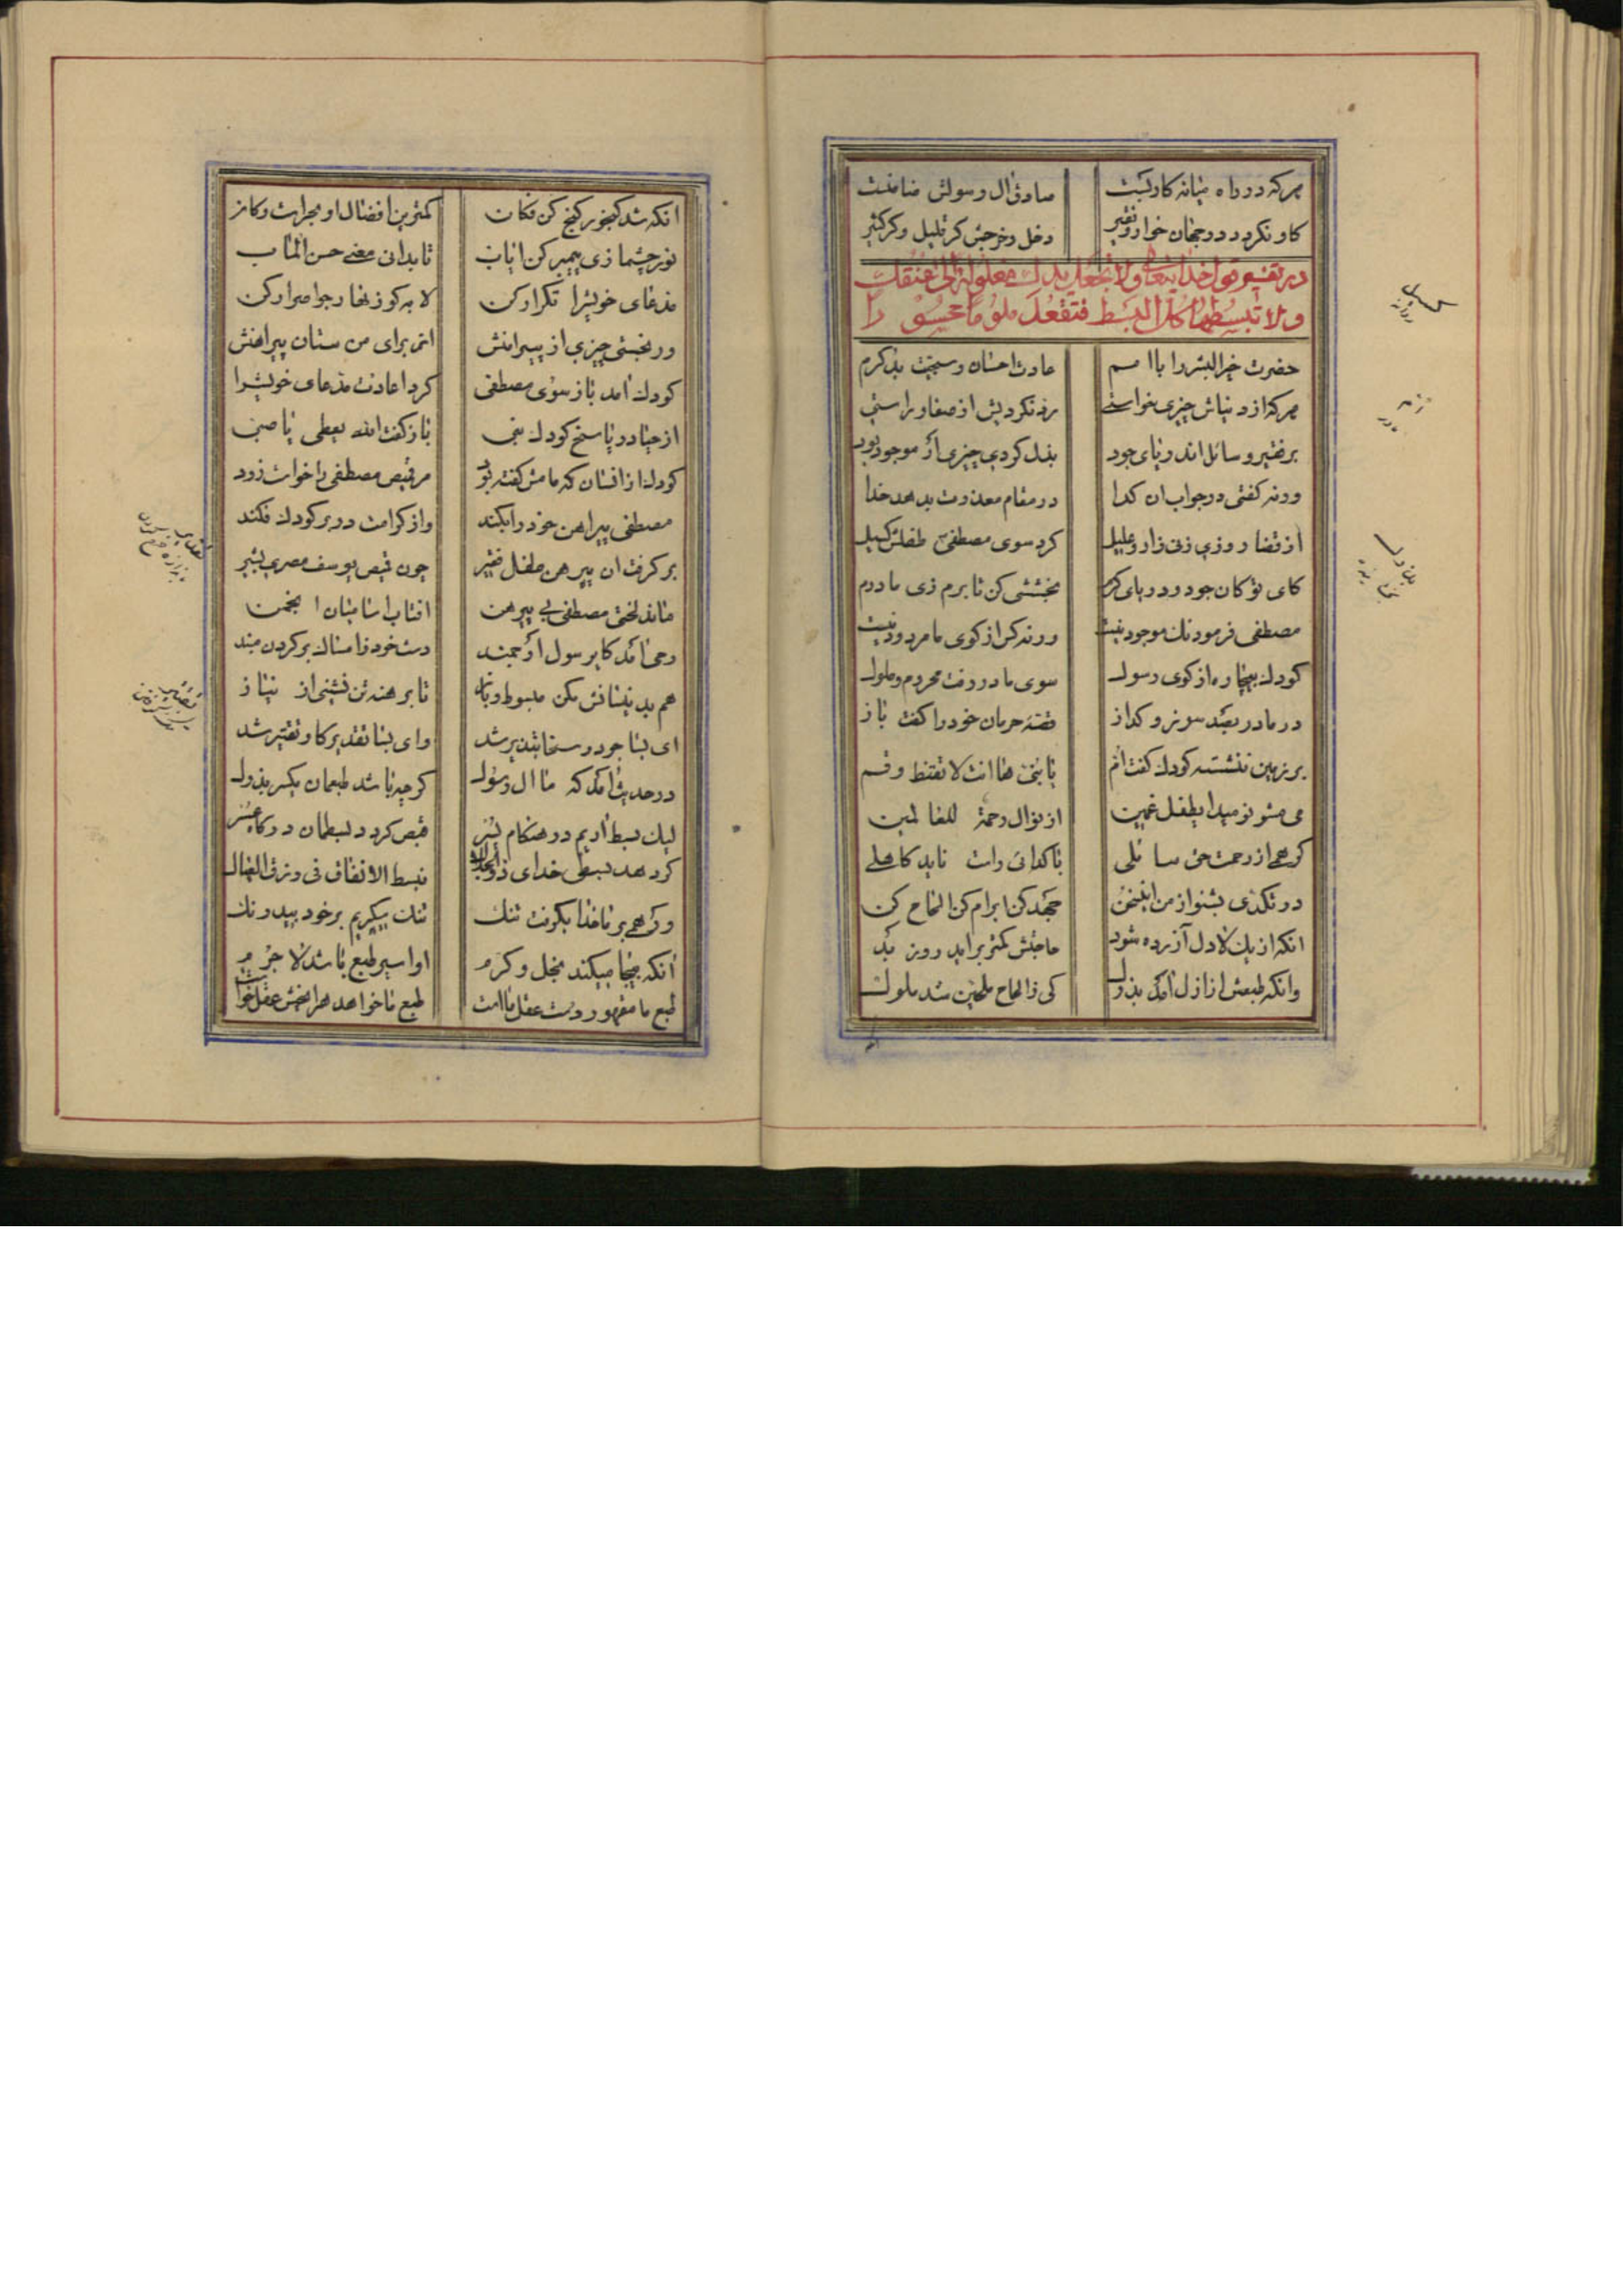 هرکه در راه میانه کار بست
صادق آل رسولش ضامنست
کاو نگردد در جهان خوار و فقیر
دخل و خرجش گر قلیل و گر کثیر
در تفسیر قول خدایتعالی ولا تجعل یدك مغلولة الی عنقك
ولا تبسطها کل البسط فتقعد ملوما محسورا
حضرت خیر البشر را با امم
عادت احسان و سجیت بد کرم
هرکه از دنیاش چیزی خواستی
رد نکردیش از صفا و راستی
بر فقیر و سائل اندر پای جود
بذل کردی چیزی ار موجود بود
ورنه گفتی در جواب ان کدا
در مقام معذرت یدهد خدا
از قضا روزی زنی زار و علیل
کرد سوی مصطفی طفلش کسیل
کای تو کان جود و دریای کرم
بخششی کن تا برم زی مادرم
مصطفی فرمود نك موجود نیست
ورنه کس از کوی ما مردود نیست
کودك بیچاره از کوی رسول
سوی مادر رفت محروم و ملول
در مادر بصد سوز و کداز
قصه حرمان خود را کفت باز
بر زمین ننشسته کودك کفت ام
یا بنی ها انت لا تقنط و قم
می مشو نومید ای طفل غمین
از نوال رحمة للعالمین
کرهمی از رحمت حق سائلی
با کدائی راست ناید کاهلی
در تکدی بشنو از من این سخن
جهد کن ابرام کن الحاح کن
انکه از یك لا دل آزرده شود
حاجتش کمتر براید روز بد
وانکه طبعش از ازل آمد بذول
کی ز الحاح ملحین شد ملول
انکه شد کنجور کنج کن فکان
کمترین افضال او بحر است و کان
نور چشما زی پیمبر کن ایاب
تا بدانی معنی حسن المآب
مدعای خویش را تکرار کن
لابه کو زنهار جو اصرار کن
ور نبخشی چیزی از پیرامنش
این برای من ستان پیراهنش
کودك آمد باز سوی مصطفی
کرد اعادت مدعای خویش را
از حیا در پاسخ کودك نبی
باز کفت الله یعطی یا صبی
کودك از افسان که مامش کفته بود
مر قمیص مصطفی را خواست زود
مصطفی پیراهن خود را بکند
واز کرامت در بر کودك فکند
بر کرفت ان پیرهن طفل فقیر
چون قمیص یوسف مصری بشیر
ماند لختی مصطفی بی پیرهن
افتاب آسا میان انجمن
وحی آمد کای رسول ارجمند
دست خود ز امساك بر کردن مبند
هم بدینسانش مکن مبسوط و باز
تا برهنه تن نشینی از نیاز
ای بسا جود و سخا تبذیر شد
وای بسا تقدیر کاو تقتیر شد
در حدیث آمد که ما آل رسول
کرچه باشد طبعمان یکسر بذول
لیك بسط آریم در هنکام یسر
قبض کردد بسطمان در کاه عسر
کر دهد بسطی خدای ذو الجلال
نبسط الانفاق فی رزق العیال
ور همی بر ما خدا بکرفت تنك
تنك بیکیریم بر خود بیدرنك
آنکه بیجا میکند بخل و کرم
او اسیر طبع باشد لا جرم
طبع ما مقهور دست عقل ماست
طبع ما خواهد هر انچش عقل خواست